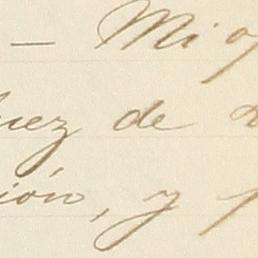 — Mi
Juez de
ión, y